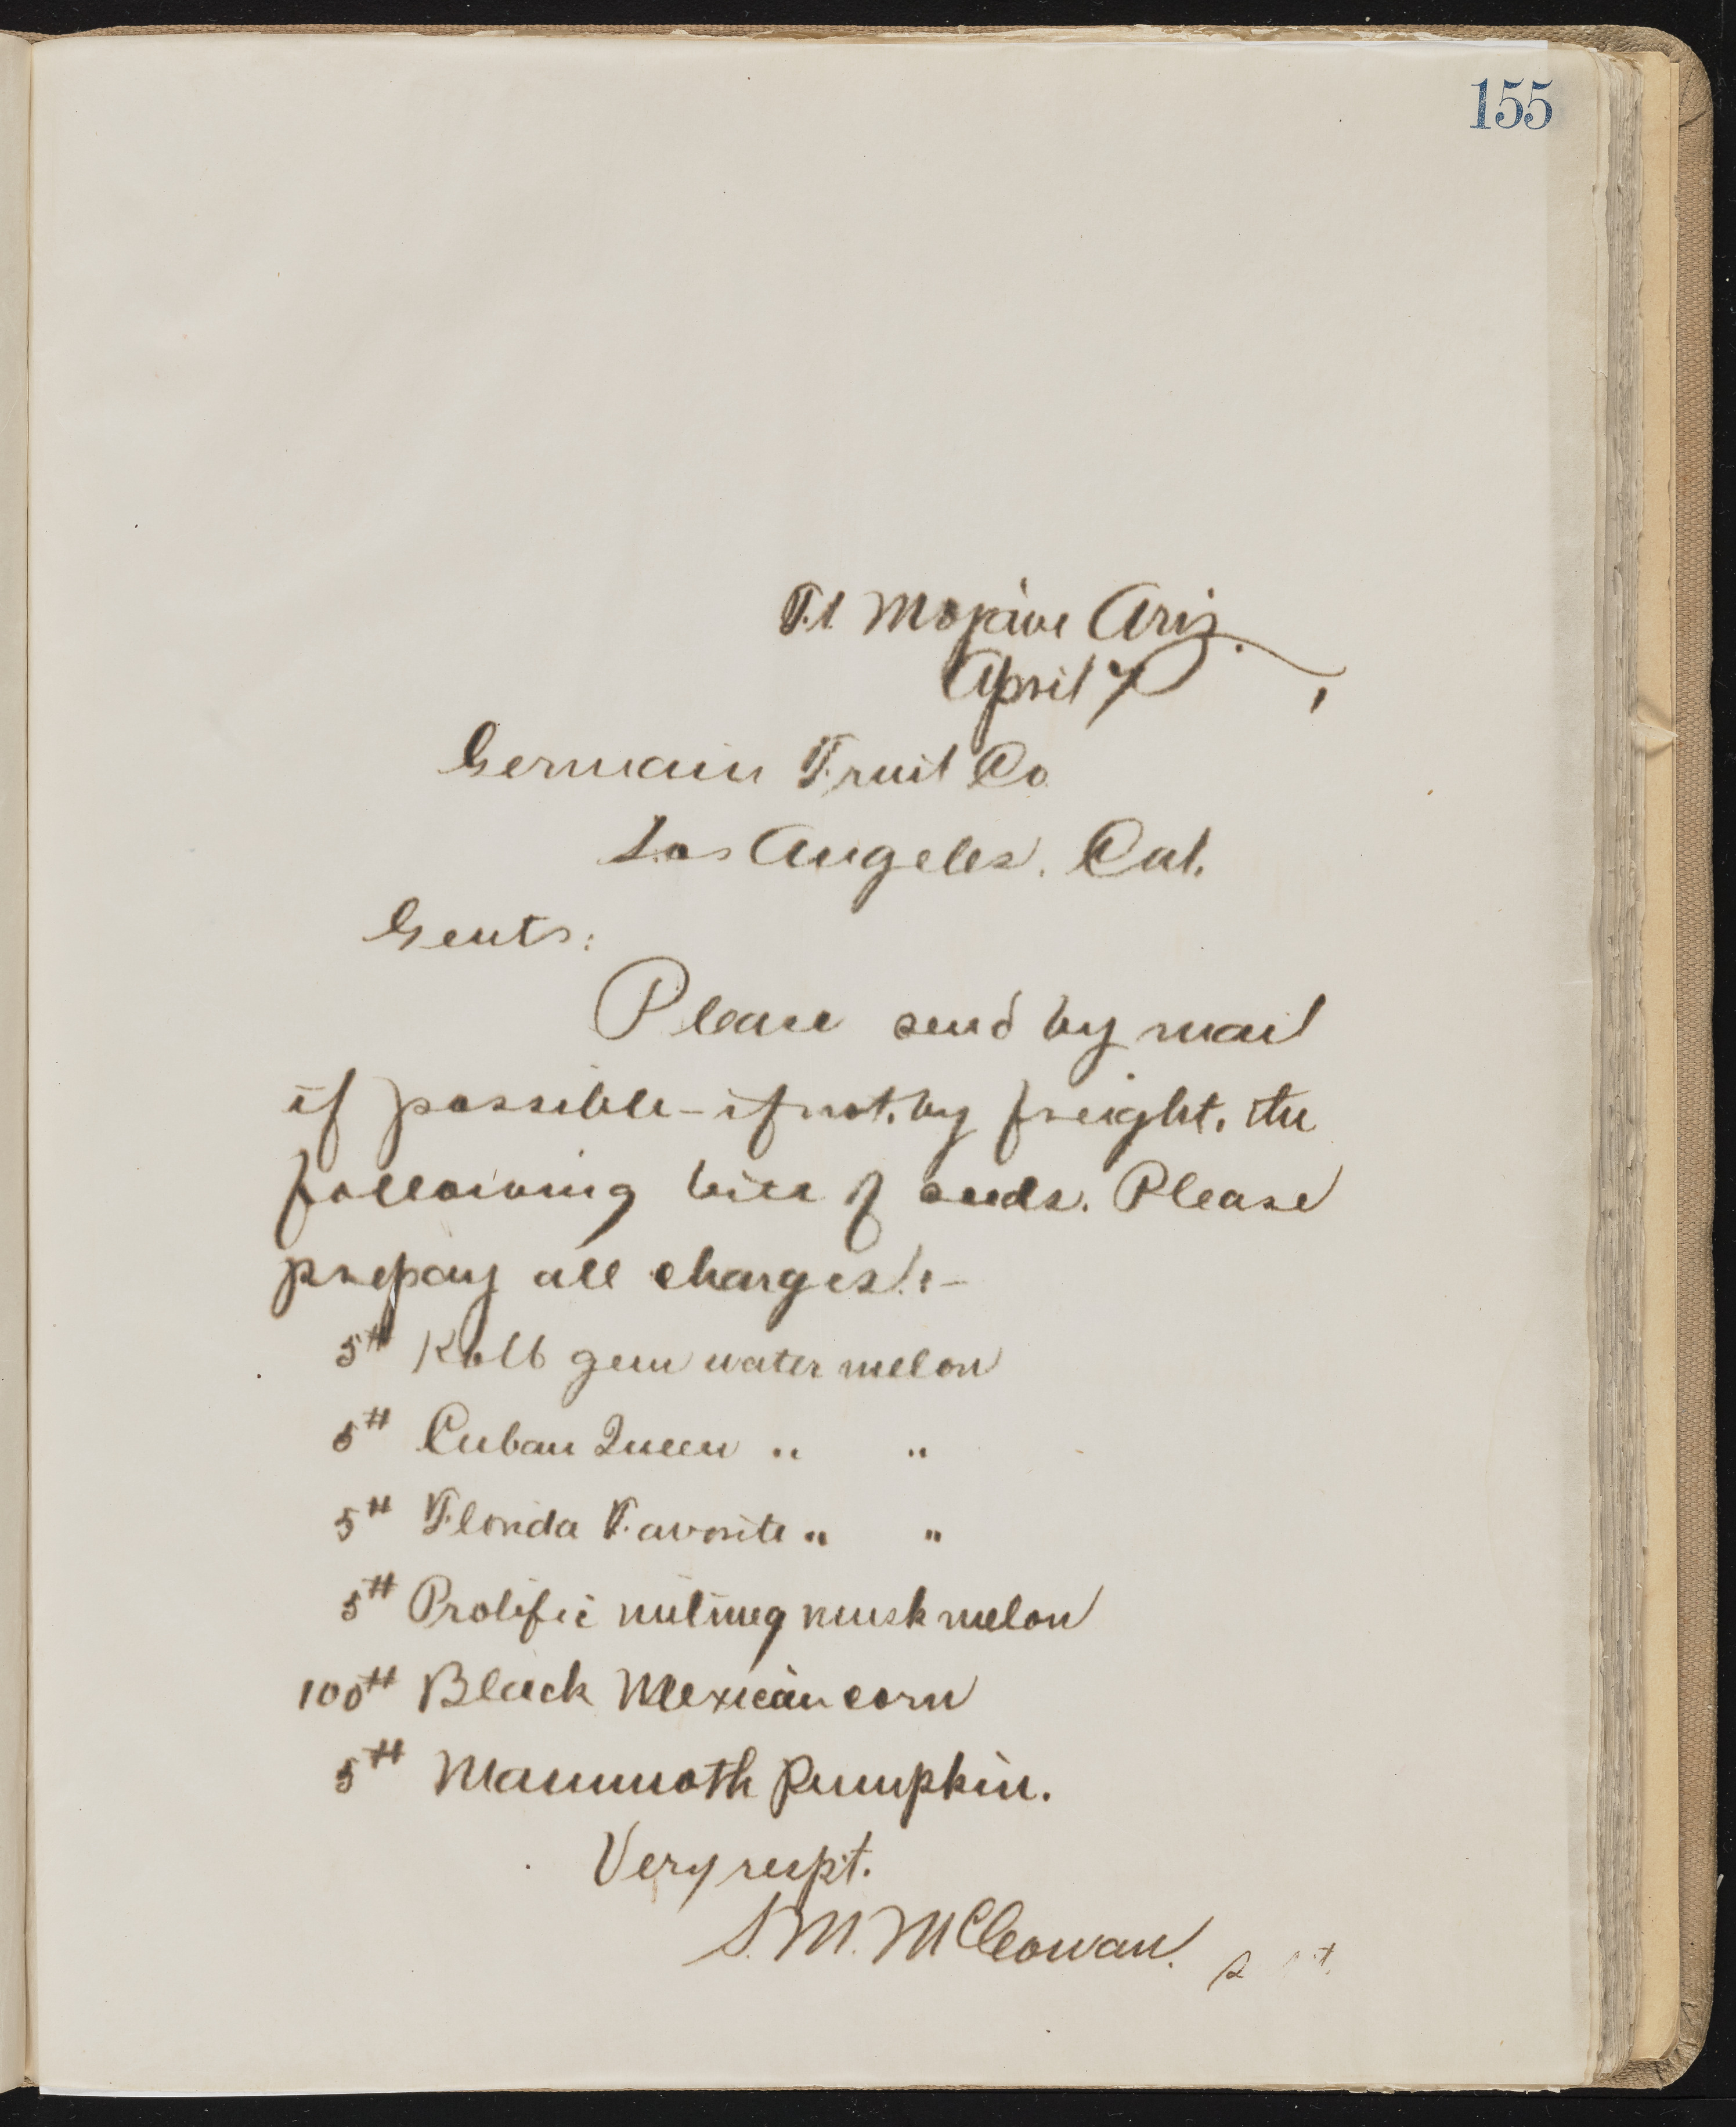 155
Ft Mojave Ariz.
April 7
Germain Fruit Co
Los Angeles. Cal.
Gents:
Please send by mail
if possible - if not, by freight, the
following bill of seeds. Please
prepay all charges.:-
5# Kolb gem water melon
5# Cuban Queen " "
5# Florida Favorite " "
5# Prolific nutmeg musk melon
100# Black Mexican corn
5# Mammoth Pumpkin.
Very respt.
S. M. McCowan.